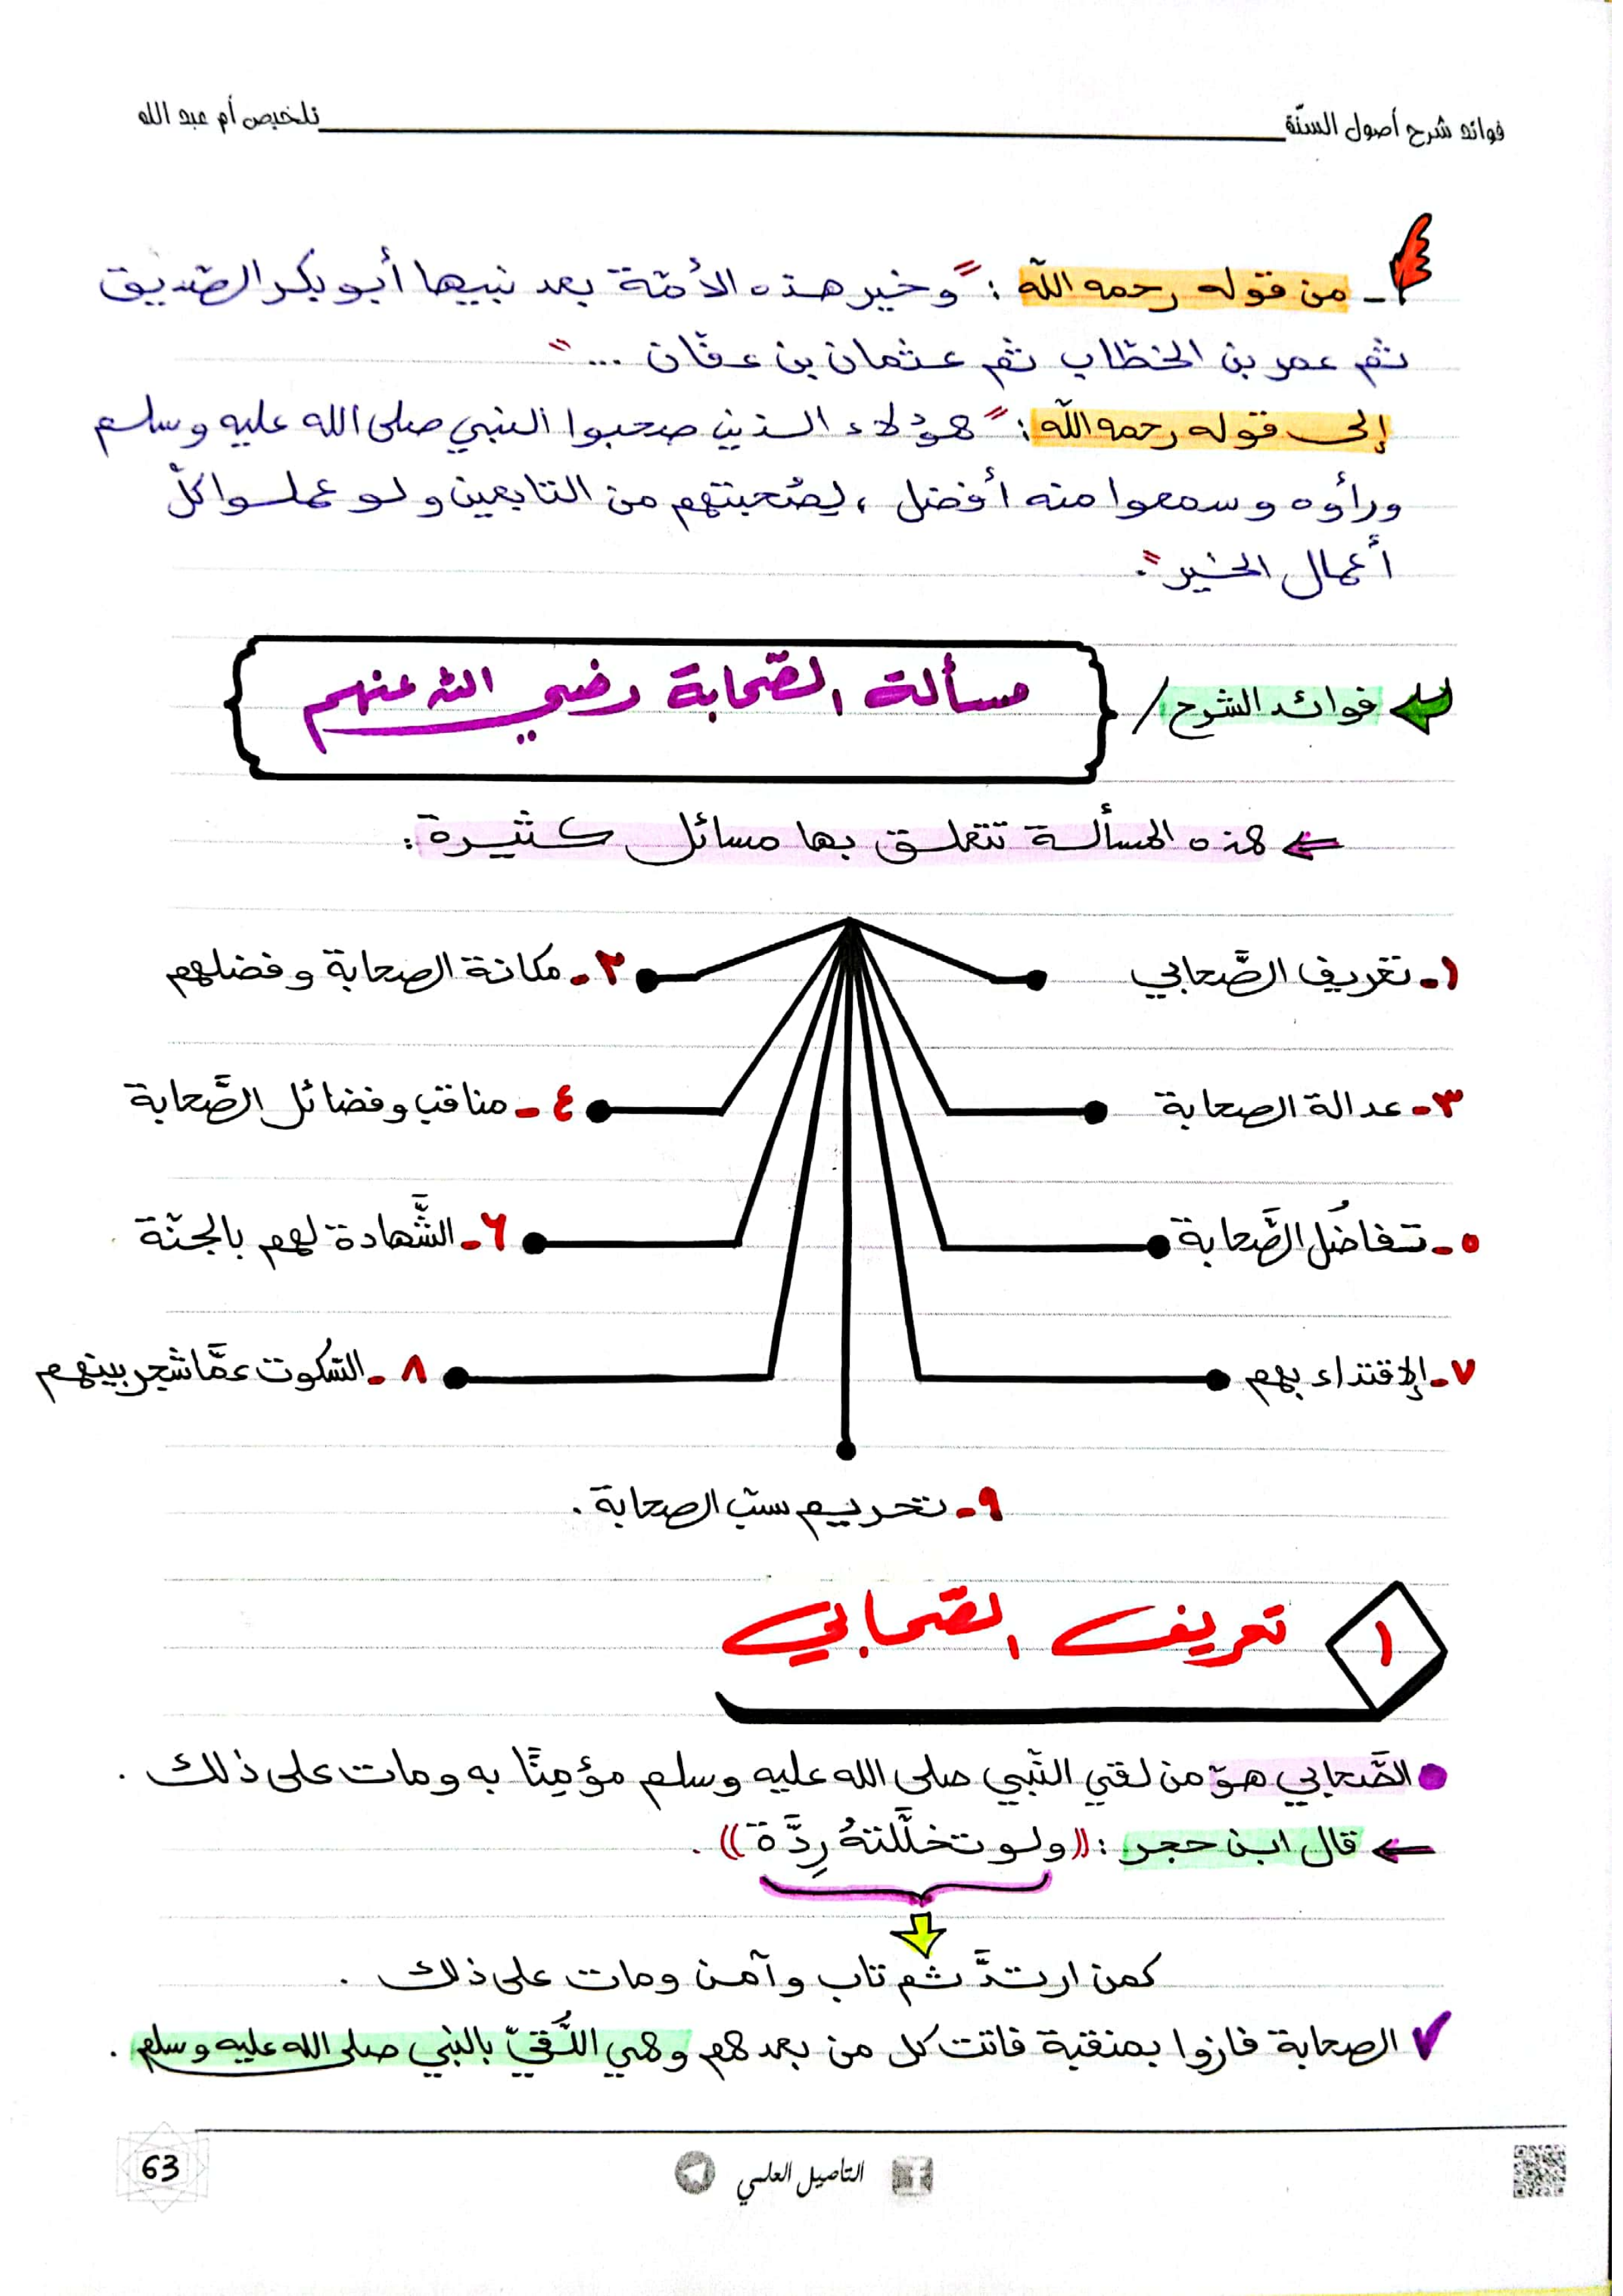 فوائد شرح أصول السنّة
تلخيص أم عبد الله
- من قوله رحمه الله : "وخير هذه الأمّة بعد نبيها أبو بكر الصّديق
ثم عمر بن الخطّاب ثم عثمان بن عفّان ... "
إلى قوله رحمه الله : "هؤلاء الذين صحبوا النبي صلى الله عليه وسلم
ورأوه وسمعوا منه أفضل ، لِصُحبتهم من التابعين ولو عملوا كلّ
أعمال الخير".
فوائد الشرح /
مسألة الصّحابة رضي الله عنهم
هذه المسألة تتعلق بها مسائل كثيرة :
١- تعريف الصَّحابي
٢- مكانة الصحابة وفضلهم
٣- عدالة الصحابة
٤- مناقب وفضائل الصَّحابة
٥- تفاضُل الصَّحابة
٦- الشَّهادة لهم بالجنّة
٧- الإقتداء بهم
٨- السُّكوت عمَّا شجر بينهم
٩- تحريم سبّ الصحابة .
١ تعريف الصّحابي
الصَّحابي هوّ من لقي النّبي صلى الله عليه وسلم مؤمِنًا به ومات على ذلك .
قال ابن حجر : ((ولو تخلَّلتهُ رِدَّة)) .
كمن ارتدَّ ثم تاب وآمن ومات على ذلك .
الصحابة فازوا بمنقبة فاتت كل من بعدهم وهي اللُّقيّ بالنبي صلى الله عليه وسلم .
التاصيل العلمي
63